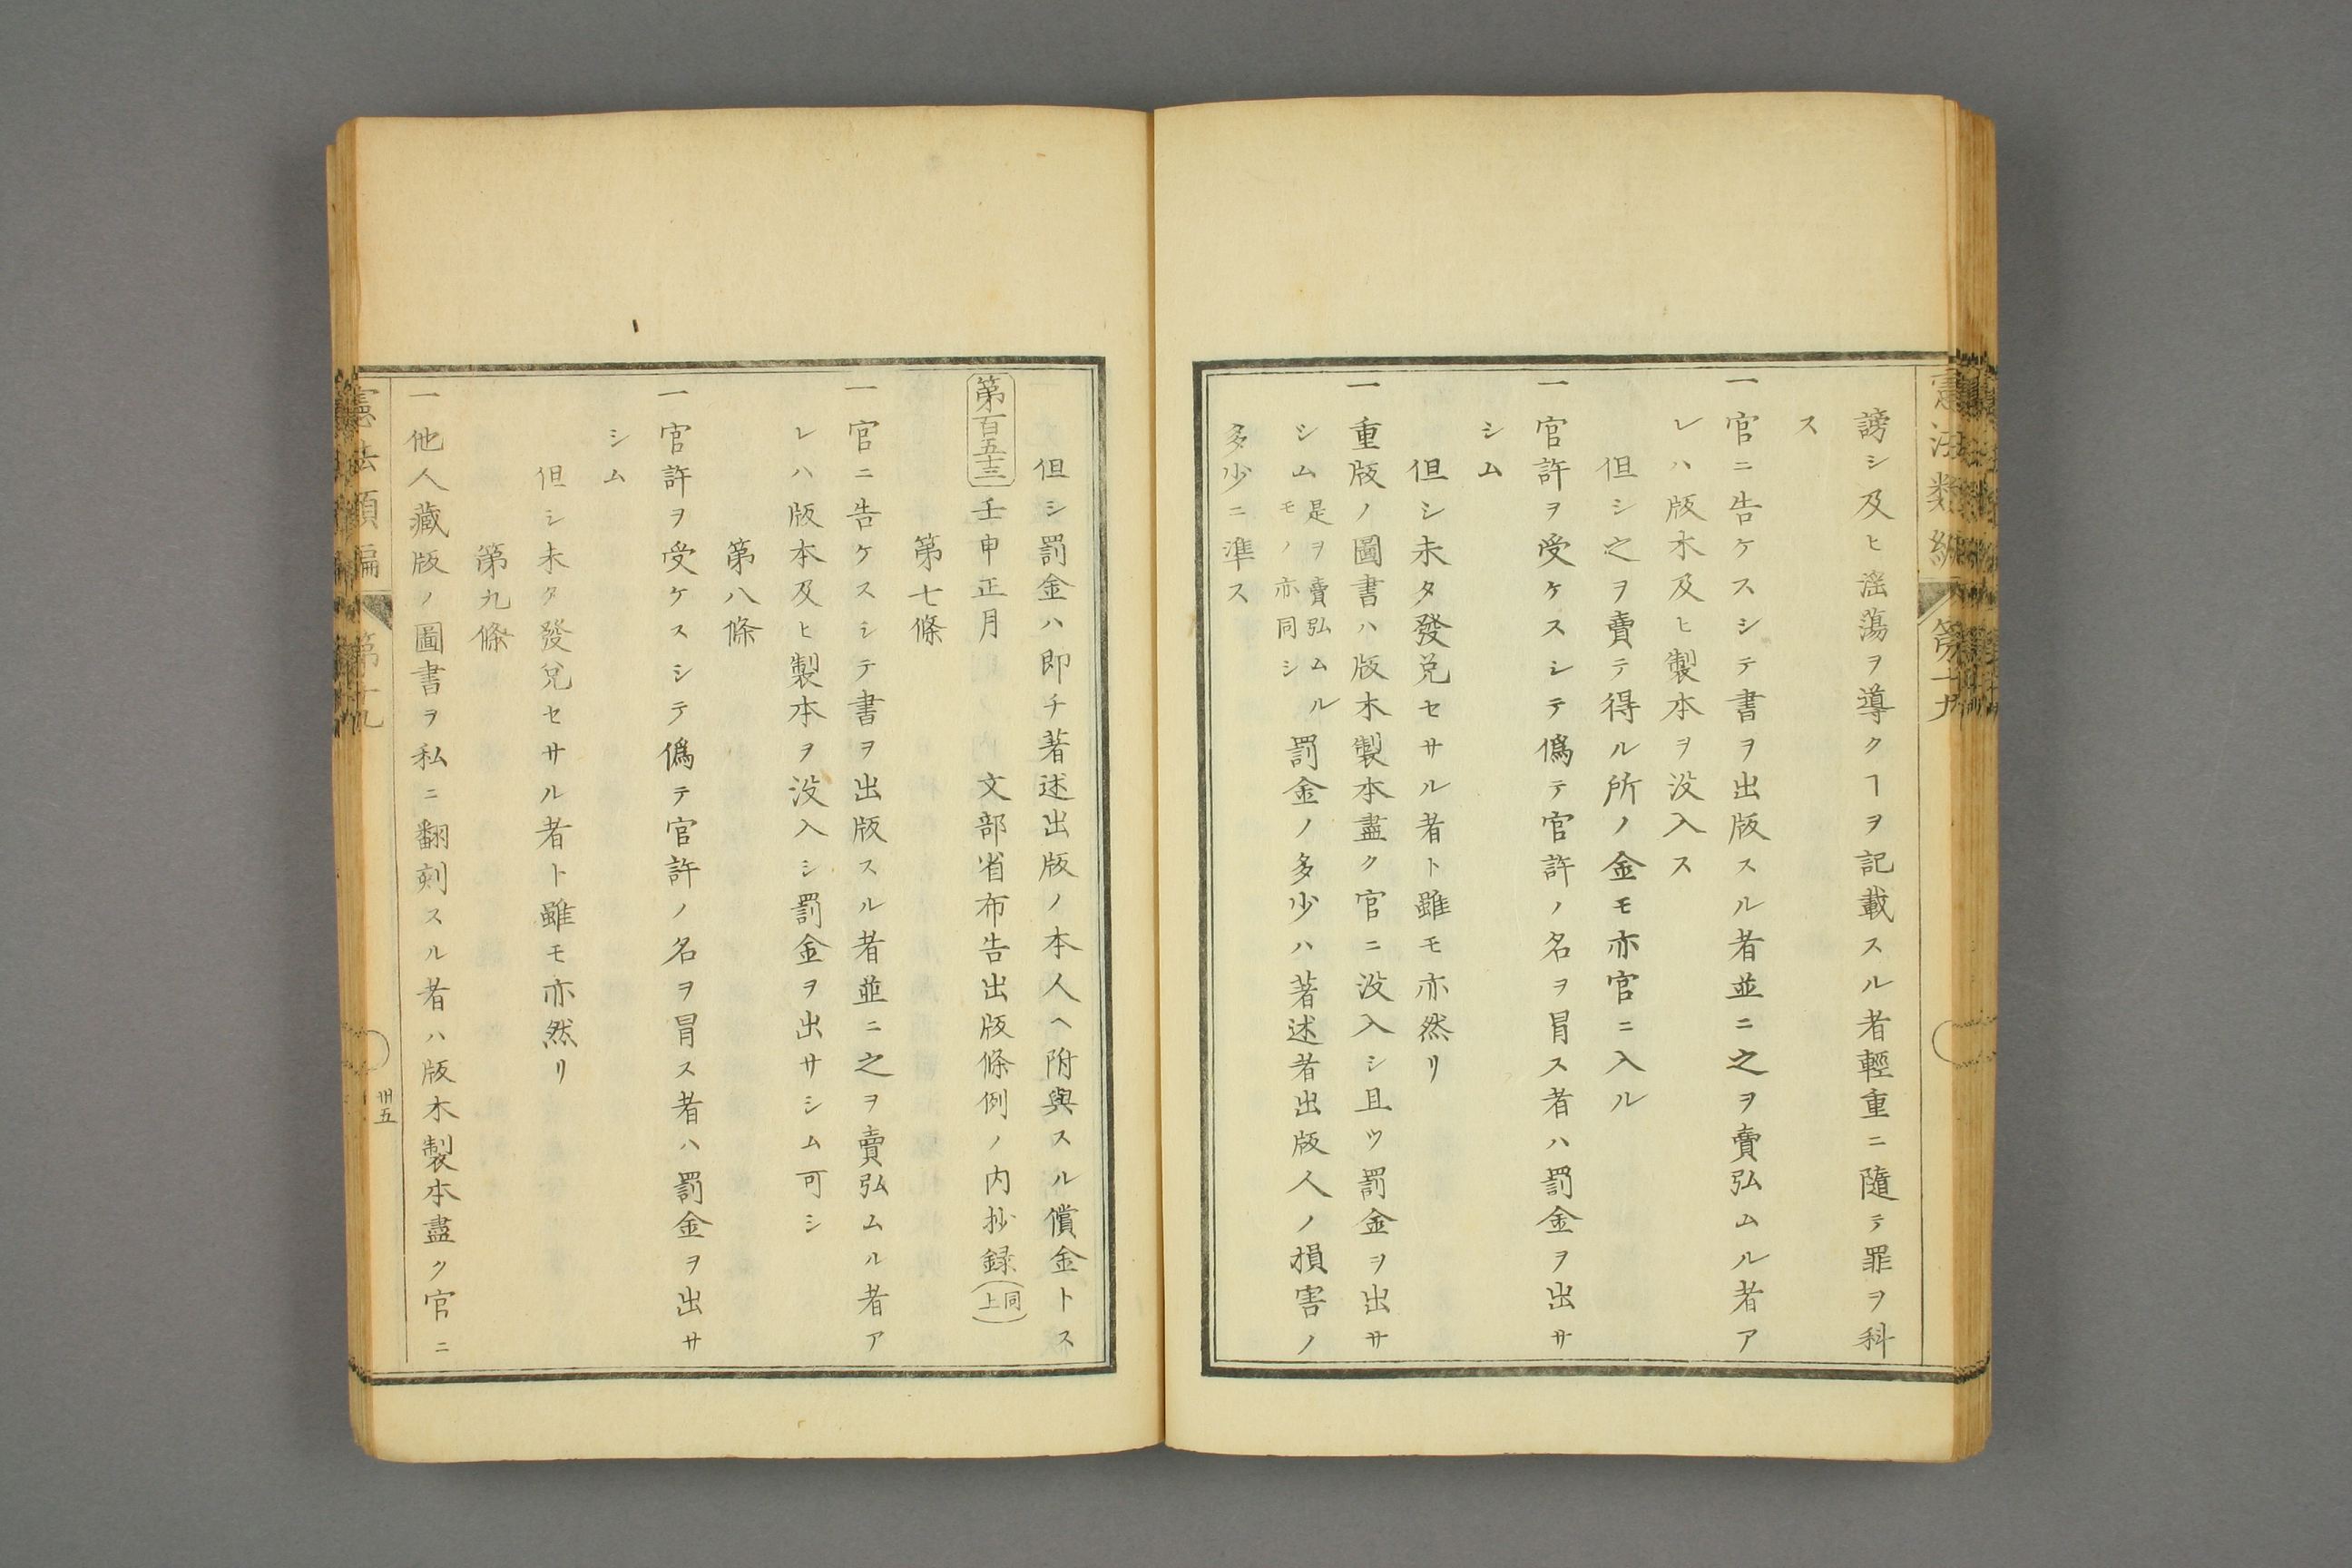 憲法類編
第十九
謗シ及ヒ淫蕩ヲ導クヿヲ記載スル者輕重ニ隨テ罪ヲ科
ス
一官ニ告ケスシテ書ヲ出版スル者並ニ之ヲ賣弘ムル者ア
レハ版木及ヒ製本ヲ沒入ス
但シ之ヲ賣テ得ル所ノ金モ亦官ニ入ル
一官許ヲ受ケスシテ僞テ官許ノ名ヲ冐ス者ハ罰金ヲ出サ
シム
但シ未タ發兌セサル者ト雖モ亦然リ
一重版ノ圖書ハ版木製本盡ク官ニ沒入シ且ツ罰金ヲ出サ
シム是ヲ賣弘ムルモノ亦同シ罰金ノ多少ハ著述者出版人ノ損害ノ
多少ニ準ス
但シ罰金ハ即チ著述出版ノ本人ヘ附與スル償金トス
第百五十三壬申正月 文部省布告出版條例ノ内抄録(同上)
第七條
一官ニ告ケスシテ書ヲ出版スル者並ニ之ヲ賣弘ムル者ア
レハ版本及ヒ製本ヲ沒入シ罰金ヲ出サシム可シ
第八條
一官許ヲ受ケスシテ僞テ官許ノ名ヲ冐ス者ハ罰金ヲ出サ
シム
但シ未タ發兌セサル者ト雖モ亦然リ
第九條
一他人藏版ノ圖書ヲ私ニ翻刻スル者ハ版木製本盡ク官ニ
憲法類編
第十九
卅五